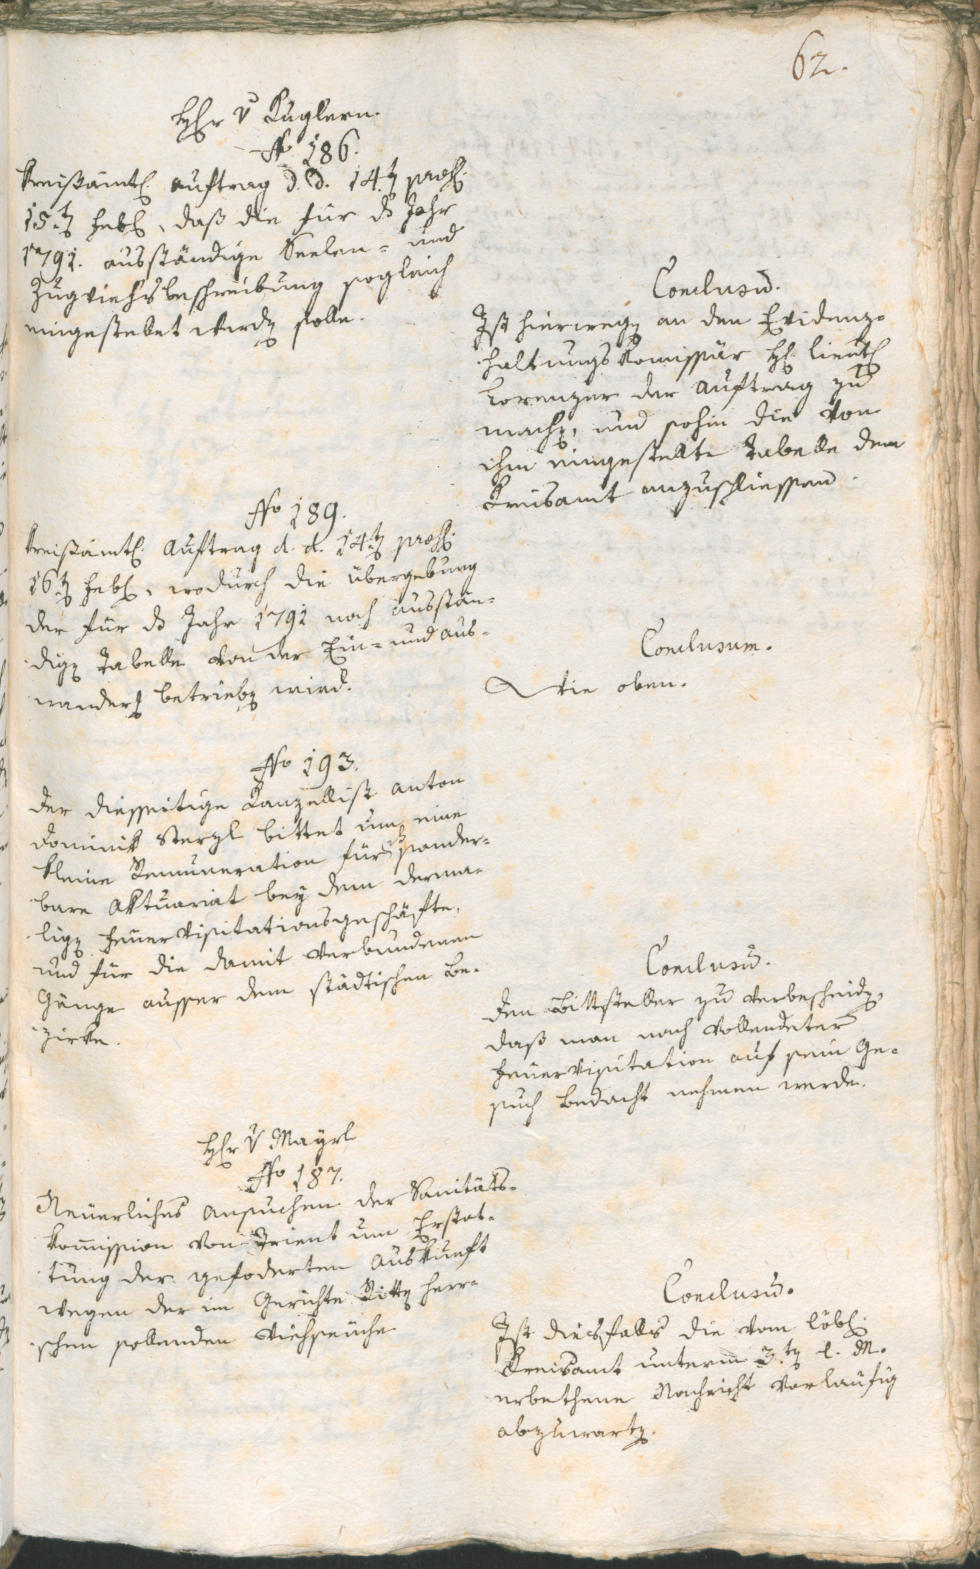 62.
H̶Er v Kuglern.
No 186.
Kreisämtl. Auftrag d. d. 14t praes.
15t Feb., daß die für ds Jahr
1791. ausständige Seelen= und
Zugviehsbeschreibung sogleich
eingestaltet werdn solle.
Conclusū.
Ist hierwegn an den Evidenz=
haltungs Komissär H. Lieut.
Lorenzer der Auftrag zu
machn, und sohin die von
ihm eingestellte Tabelle dem
Kreisamt anzuschliessen.
No 189.
Kreisämtl. Auftrag d. d. 14t praes.
16t Feb., wodurch die Übergebung
der für ds Jahr 1791 noch ausstän=
dign Tabelle von der Ein= und Aus=
wanderg betriebn wird.
Conclusum.
Wie oben.
No 193.
Der diesseitige Kanzellist Anton
Dominik Sterzl bittet um eine
kleine Remuneration fürs sonder=
bare Aktuariat bey dem derma=
lign Feuervisitationsgeschäfte,
und für die damit verbundenen
Gänge ausser dem städtischen Be=
zirke.
Conclusū.
Den Bittsteller zu verbescheidn,
daß man nach vollendeter
Feuervisitation auf sein Ge=
such Bedacht nehmen werde.
HEr v Mayrl
No 187.
Neuerliches Ansuchen der Sanitäts=
kom̄ission von Trient um Erstat=
tung der gefoderten Auskunft
wegen der im Gerichte Rittn herr=
schen sollenden Viehseuche
Conclusū.
Ist diesfalls die vom löbl.
Kreisamt unterm 3.tn l. M.
erbethene Nachricht vorläufig
abzuwartn.